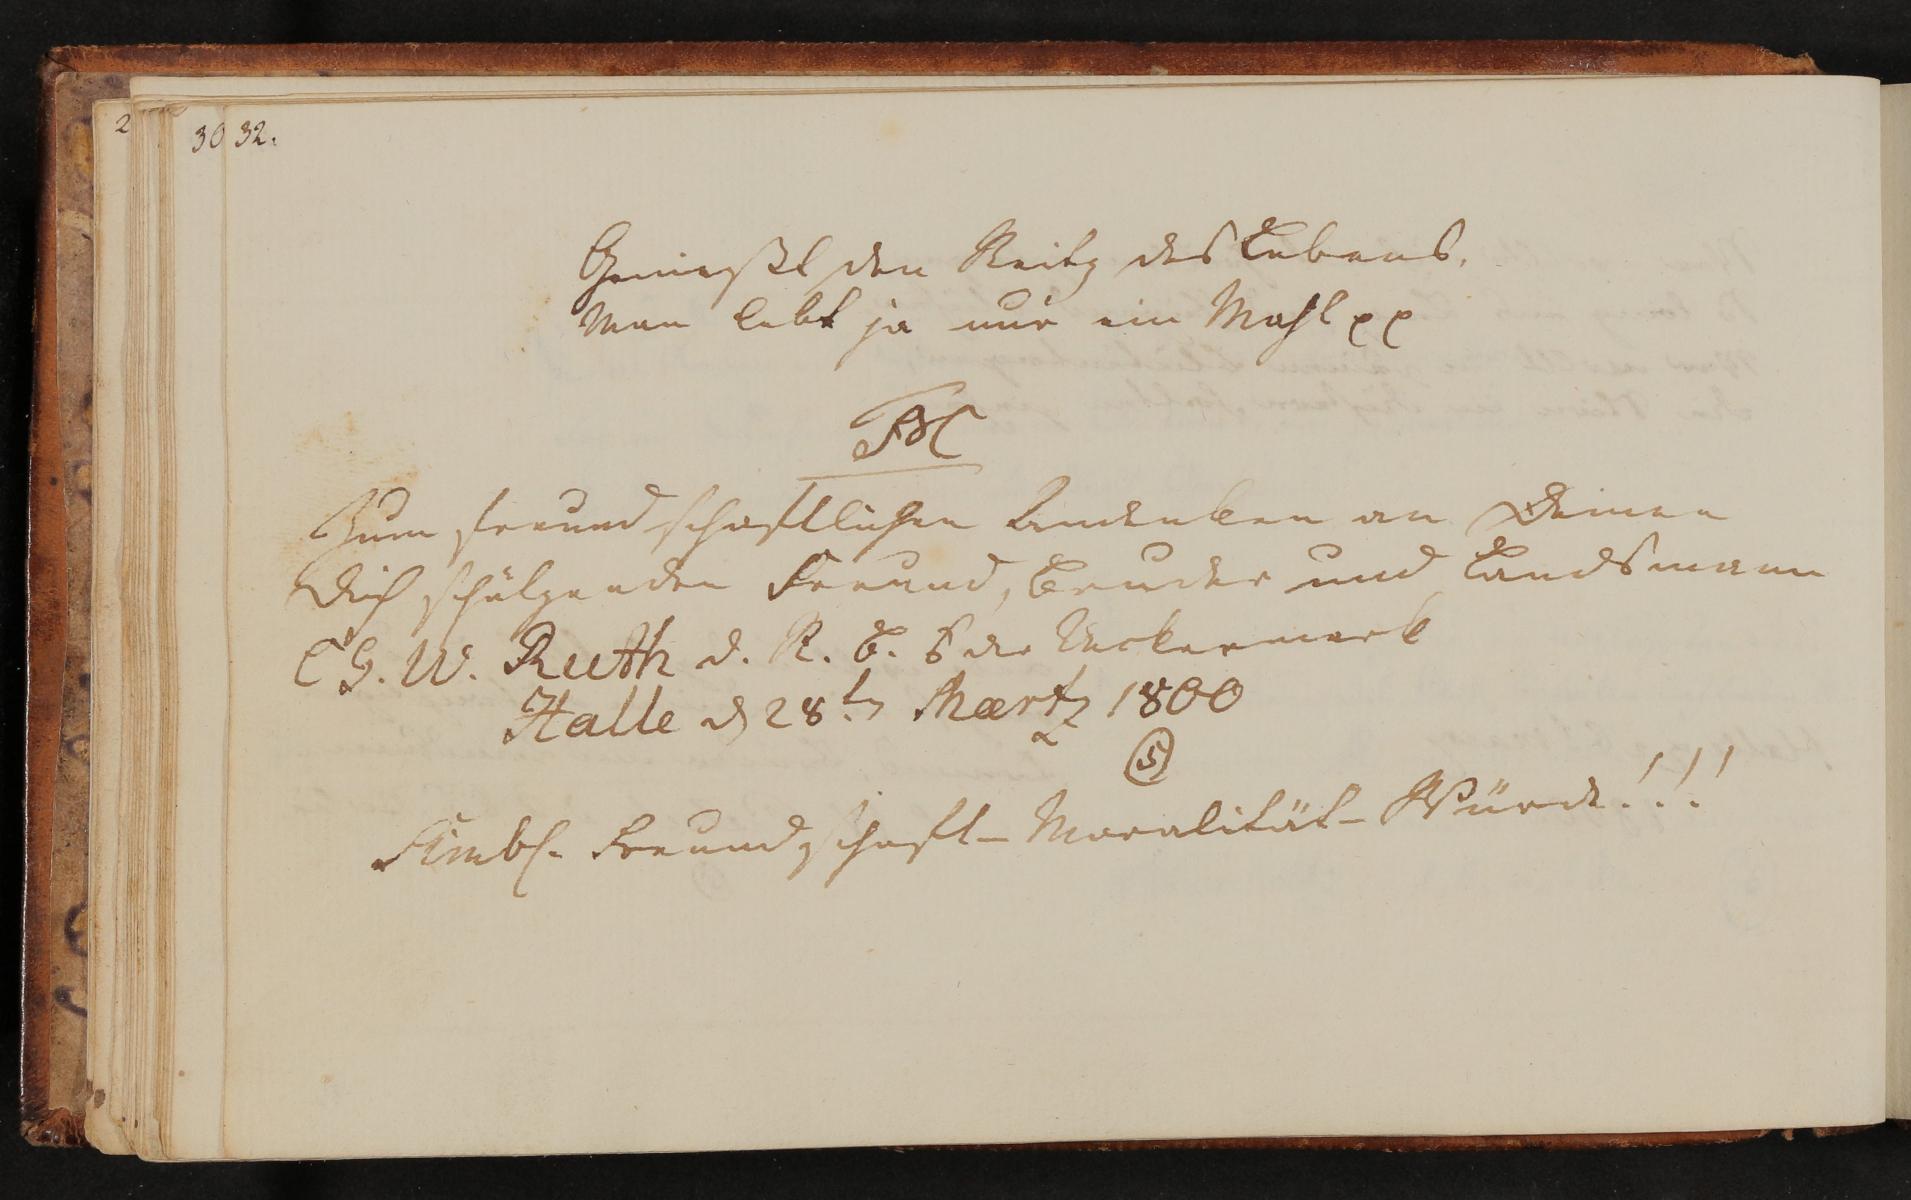 2 30 32.
Genießt den Reitz des Lebens,
Man lebt ja nur ein Mahl pp
Zum freundschaftlichen Andenken an Deinen
Dich schätzenden Freund, Bruder und Landsmann
C G. W. Ruth d. R. B. aus der Uckermark
Halle d 28t Maertz 1800
5
Simbh. Freundschaft – Moralität – Würde!!!